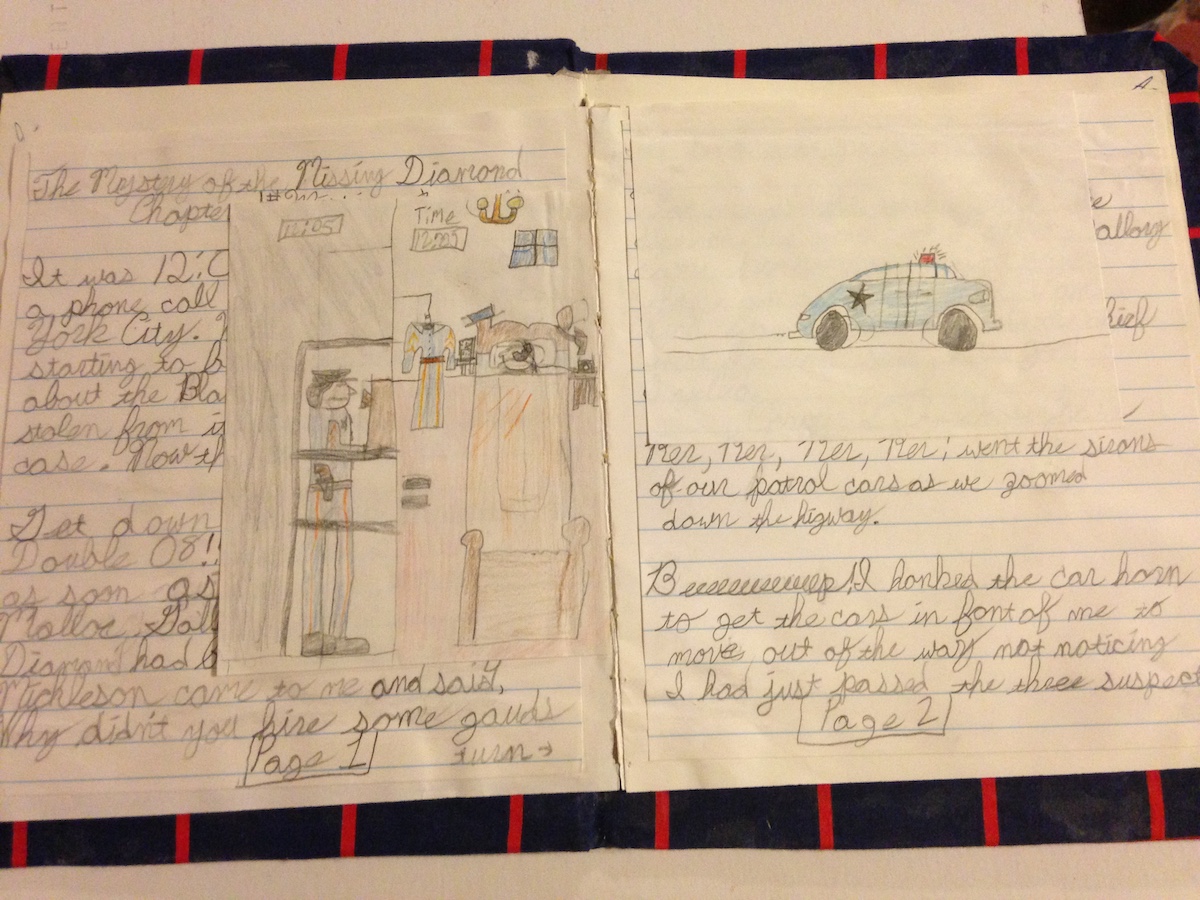 The Mystery of the Missing Diamond
Chapter
12:05
Time
12:05
It was 12:0
a phone call
York City.
starting to b
about the Bla
stolen from i
case. Now th
Get down
Double 08!!
as soon as
Malloc. Gall
Diamond had b
Michleson came to me and said,
Why didn't you hire some gauds
Page 1
turn →
A-
allory
ief
Ner, Ner, Ner, Ner! went the sirons
of our patrol cars as we zoomed
down the higway.
Beeeeeeeeeep! I honked the car horn
to get the cars in font of me to
move out of the way not noticing
I had just passed the three suspect
Page 2